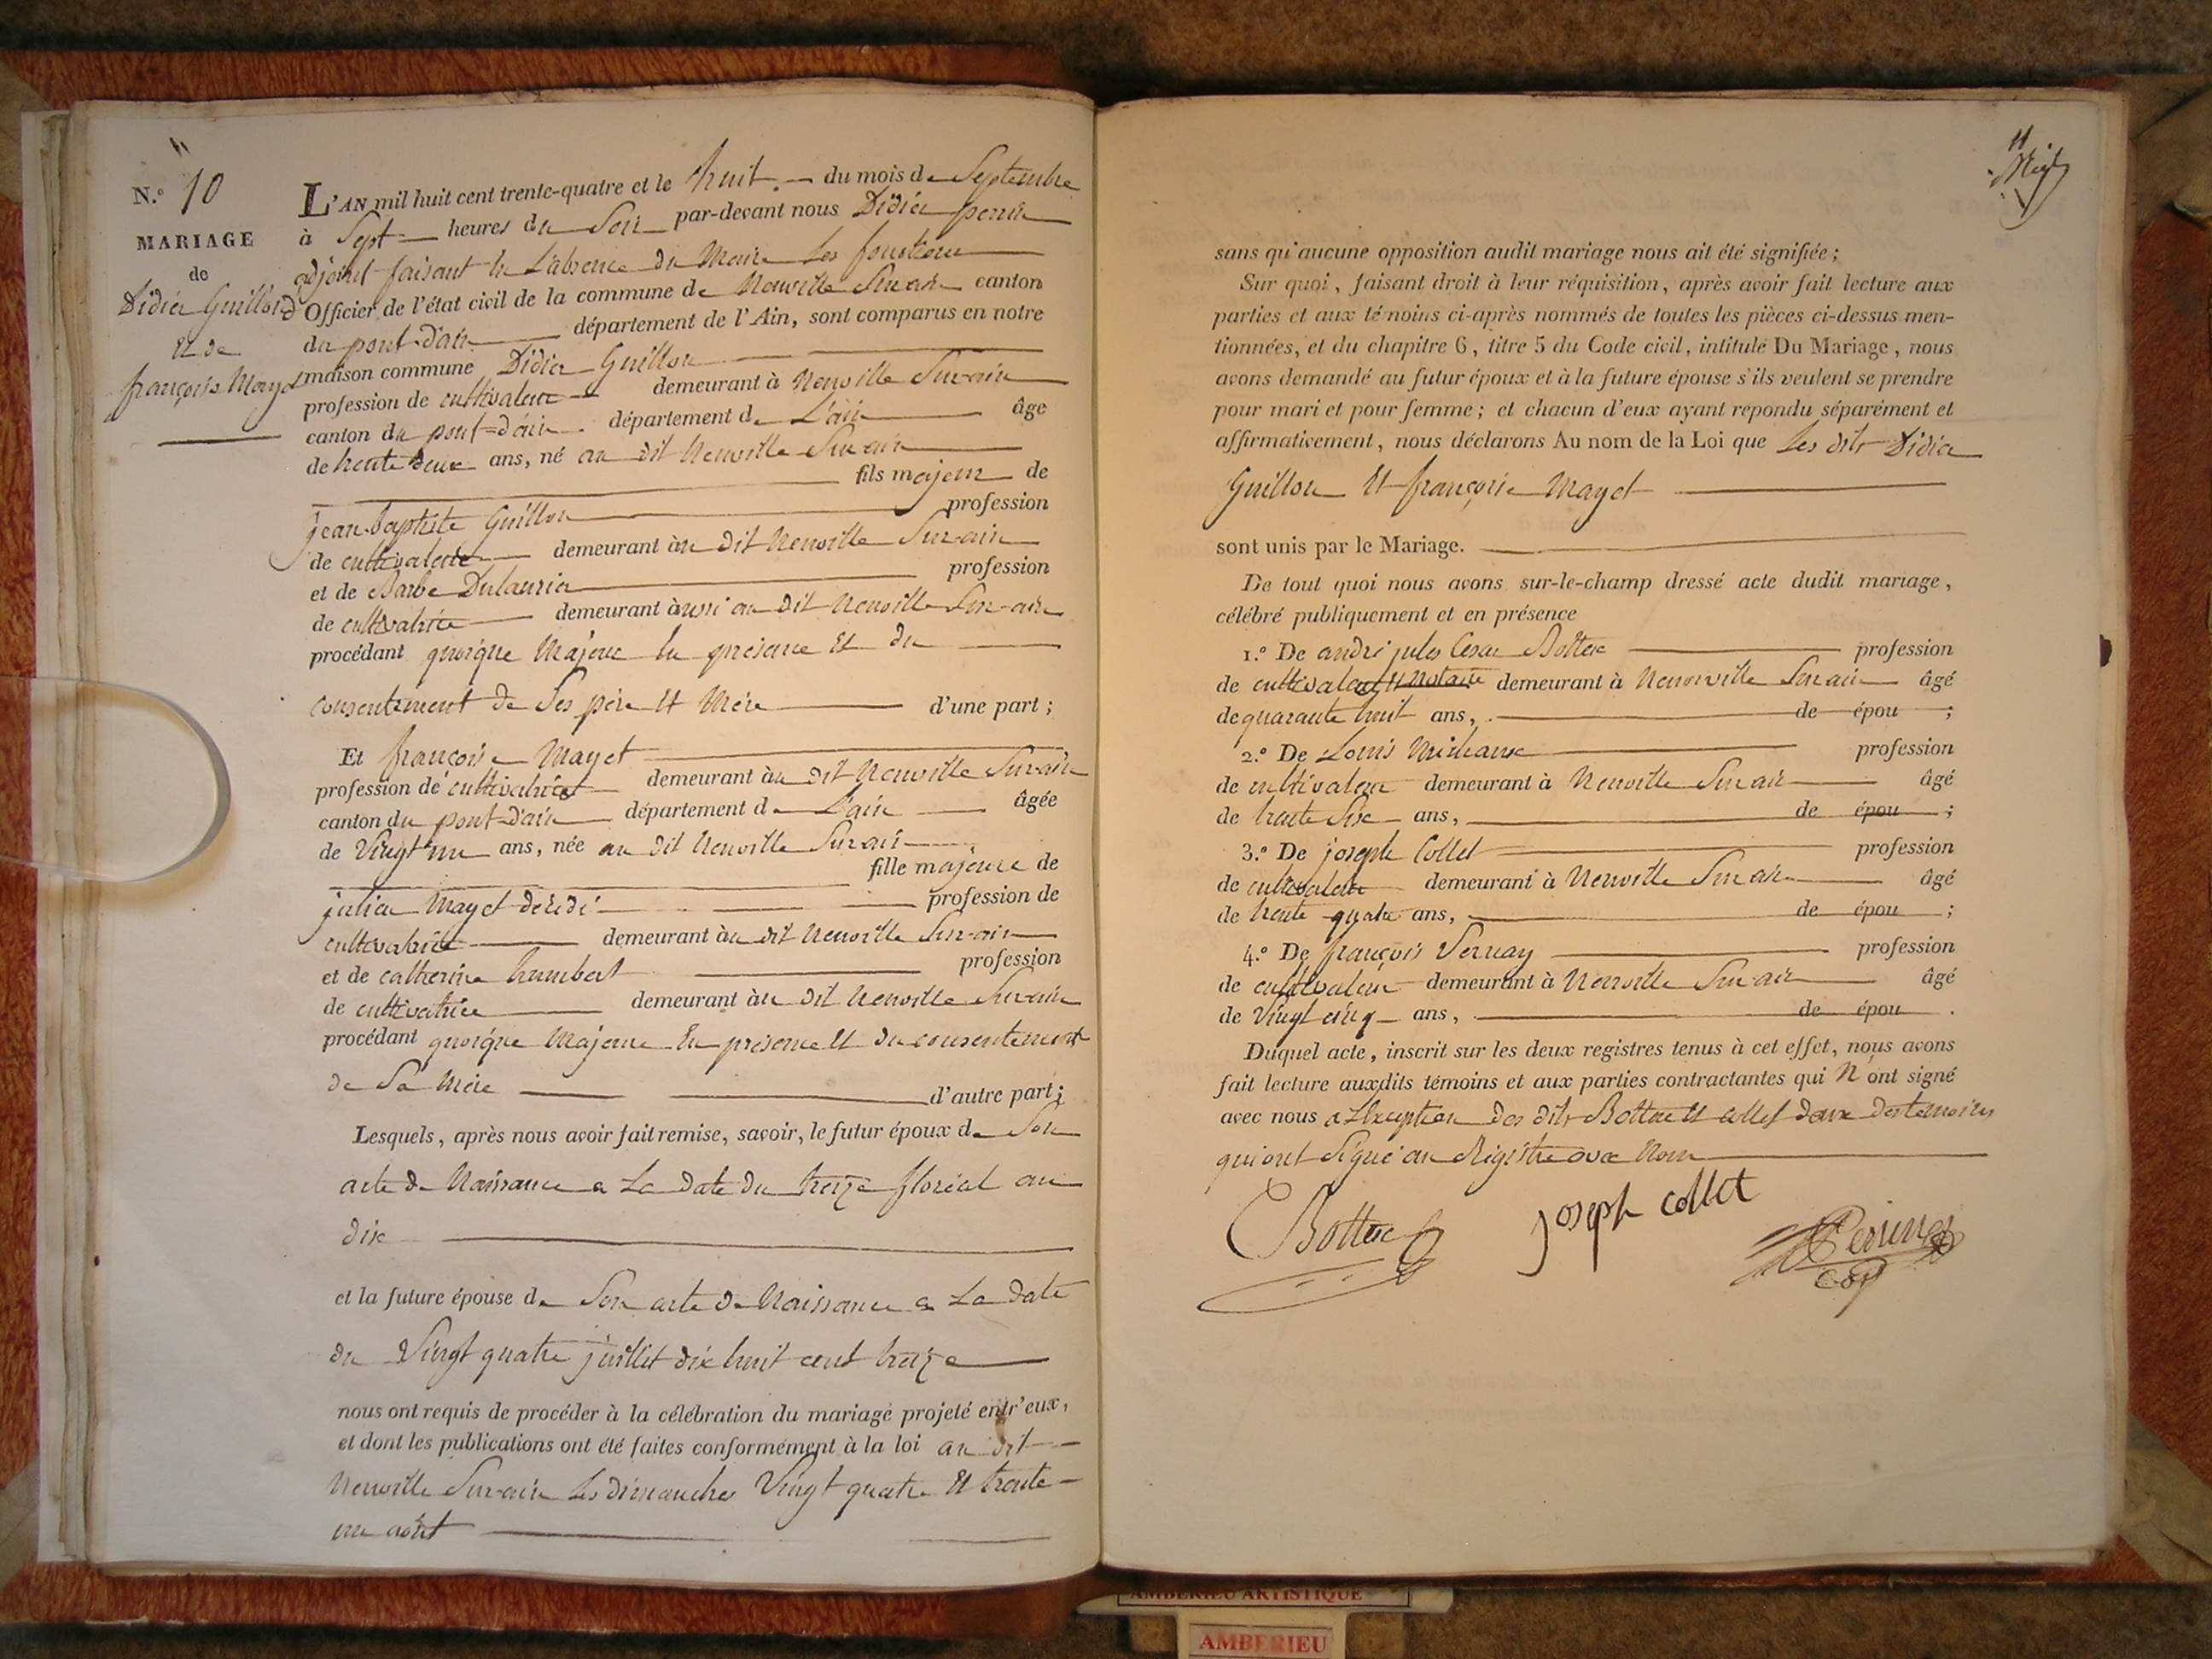 N.º 10
MARIAGE
de
Didier Guillon
Et de
françoise Mayet
L'AN mil huit cent trente-quatre et le huit du mois de Septembre
à Sept heures du Soir par-devant nous Didier perrin
adjoint faisant en L'absence du Maire Les fonctions
Officier de l'état civil de la commune de Neuville Sur ain canton
du pont-d'ain département de l'Ain, sont comparus en notre
maison commune Didier Guillon
profession de cultivateur demeurant à Neuville Sur-ain
canton du pont=d'ain département de L'ain âge
de trente deux ans, né au dit Neuville Sur ain
fils majeur de
jean-baptiste Guillon profession
de cultivateur demeurant àu dit Neuville Sur-ain
et de Barbe Dulaurier profession
de cultivatrice demeurant àussi au dit Neuville Sur-ain
procédant quoique Majeur En présence Et du
consentement de Ses père Et Mère d'une part ;
Et françoise Mayet
profession de cultivatrice demeurant àu dit Neuville Sur-ain
canton du pont-d'ain département de L'ain âgée
de Vingt un ans, née au dit Neuville Sur ain
fille majeure de
julien Mayet décédé profession de
cultivatrice demeurant àu dit Neuville Sur-ain
et de catherine humbert profession
de cultivatrice demeurant àu dit Neuville Sur-ain
procédant quoique Majeure En présence Et du consentement
de Sa Mère d'autre part ;
Lesquels, après nous avoir fait remise, savoir, le futur époux de Son
acte de Naissance a La date du treize floréal an
dix
et la future épouse de Son acte de Naissance a La date
du Vingt quatre juillet dix huit cent treize
nous ont requis de procéder à la célébration du mariage projeté entr'eux,
et dont les publications ont été faites conformément à la loi au dit
Neuville Sur-ain Les dimanches Vingt quatre Et trente
un août
11
sans qu'aucune opposition audit mariage nous ait été signifiée ;
Sur quoi, faisant droit à leur réquisition, après avoir fait lecture aux
parties et aux témoins ci-après nommés de toutes les pièces ci-dessus men-
tionnées, et du chapitre 6, titre 5 du Code civil, intitulé Du Mariage, nous
avons demandé au futur époux et à la future épouse s'ils veulent se prendre
pour mari et pour femme ; et chacun d'eux ayant répondu séparément et
affirmativement, nous déclarons Au nom de la Loi que Les dits Didier
Guillon Et françoise Mayet
sont unis par le Mariage.
De tout quoi nous avons sur-le-champ dressé acte dudit mariage,
célébré publiquement et en présence
1.º De andré jules Cesar Bottex profession
de cultivateur Et Notaire demeurant à Neuville Sur ain âgé
de quarante huit ans, de épou ;
2.º De Louis profession
de cultivateur demeurant à Neuville Sur ain âgé
de trente Six ans, de épou ;
3.º De joseph Collet profession
de cultivateur demeurant à Neuville Sur ain âgé
de trente quatre ans, de épou ;
4.º De françois Vernay profession
de cultivateur demeurant à Neuville Sur-ain âgé
de Vingt cinq ans, de épou .
Duquel acte, inscrit sur les deux registres tenus à cet effet, nous avons
fait lecture auxdits témoins et aux parties contractantes qui N'ont signé
avec nous a L'exception des dits Bottex Et collet deux des témoins
qui ont Signé au Registre avec Nous
Bottex joseph collet Perrin
AMBERIEU ARTISTIQUE
AMBERIEU